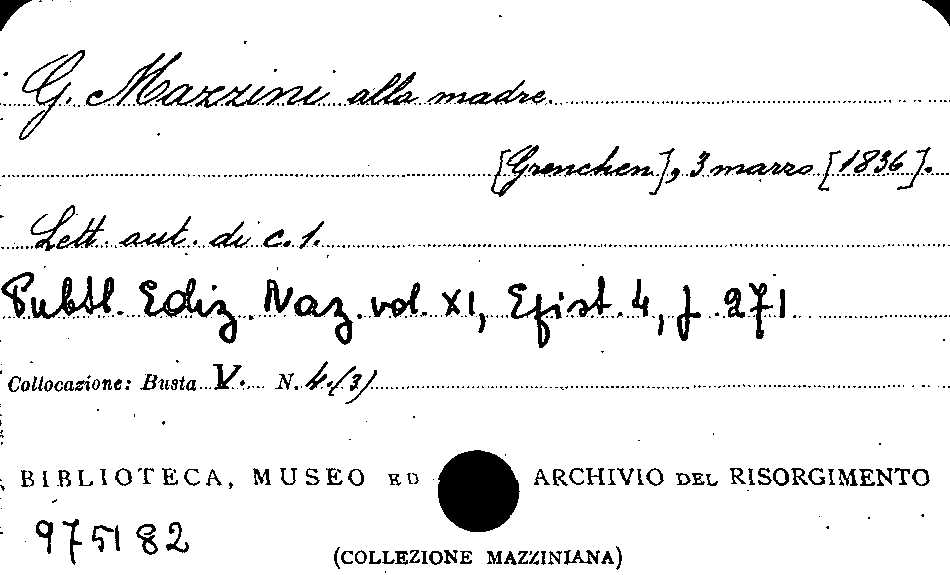 G. Mazzini alla madre.
[Grenchen], 3 marzo [1836].
Lett. aut. di c. 1.
Pubbl. Ediz. Naz. vol. XI, Epist. 4, p. 271
Collocazione: Busta V. N. 4.(3)
BIBLIOTECA, MUSEO ED ARCHIVIO DEL RISORGIMENTO
975182
(COLLEZIONE MAZZINIANA)